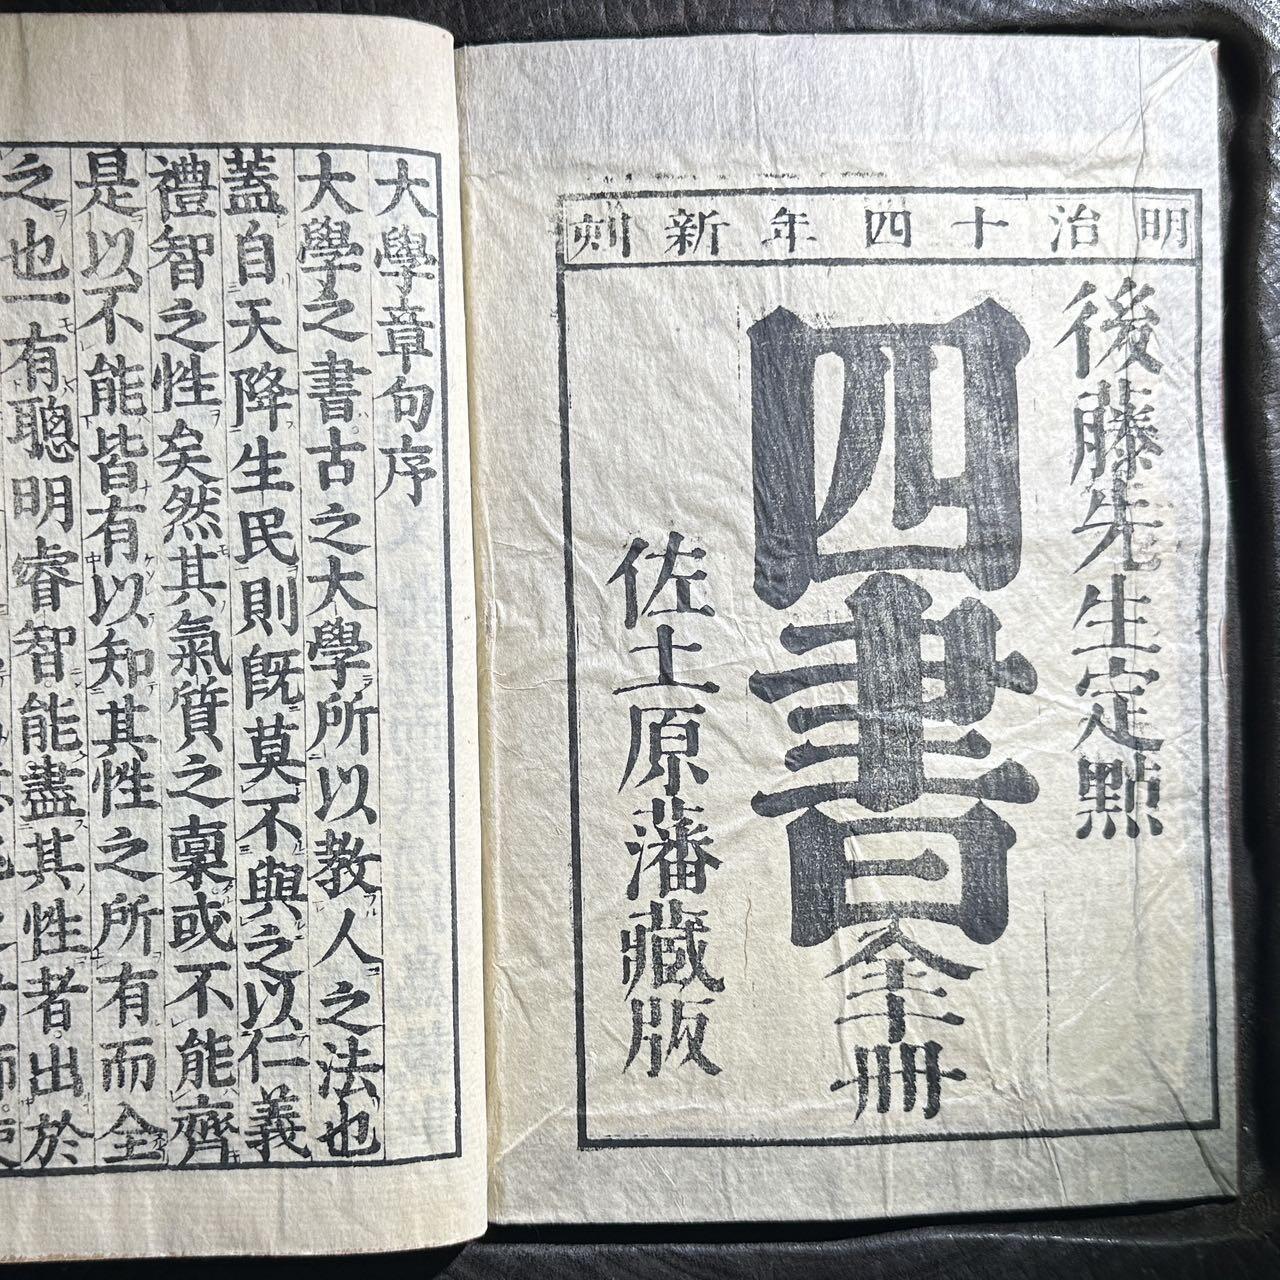 明治十四年新刻
後藤先生定點
四書全十冊
佐土原藩藏版
大學章句序
大學之書古之大學所以教人之法也
蓋自天降生民則既莫不與之以仁義
禮智之性矣然其氣質之稟或不能齊
是以不能皆有以知其性之所有而全
之也一有聰明睿智能盡其性者出於